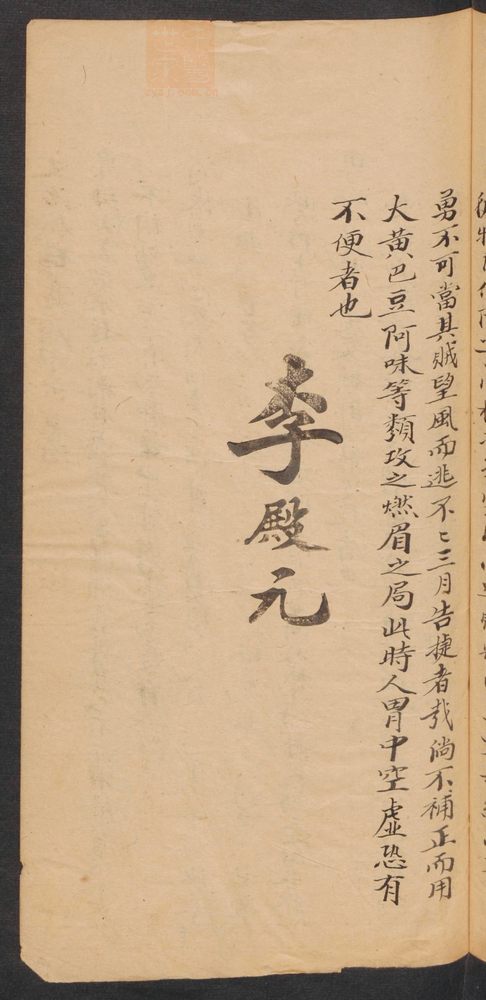 勇不可當其賊望風而逃不匕三月告捷者哉倘不補正而用
大黃巴豆阿味等類攻之燃眉之局此時人胃中空虛恐有
不便者也
李殿元